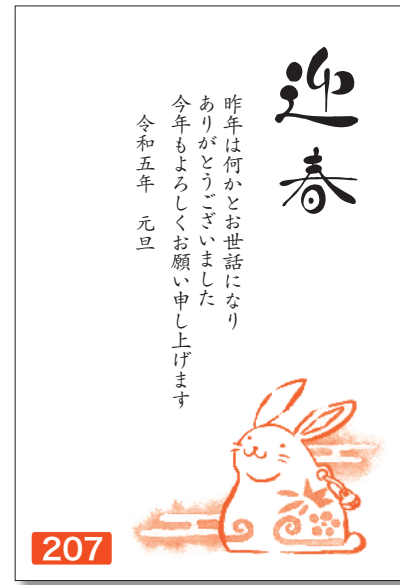 迎春
昨年は何かとお世話になり
ありがとうございました
今年もよろしくお願い申し上げます
令和五年 元旦
207